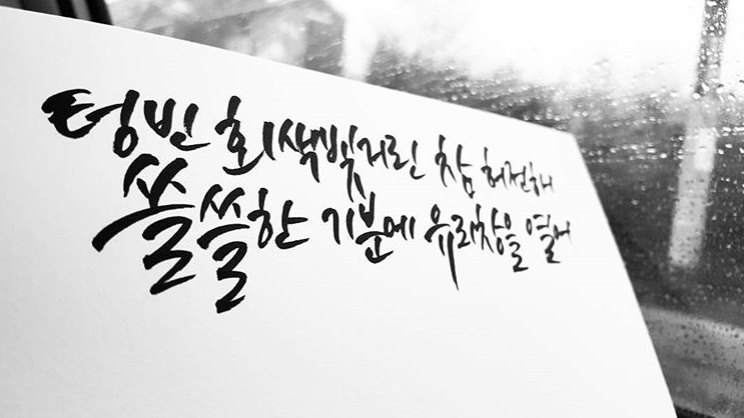 텅빈 회색빛 거린 참 허전해
쓸쓸한 기분에 유리창을 열어